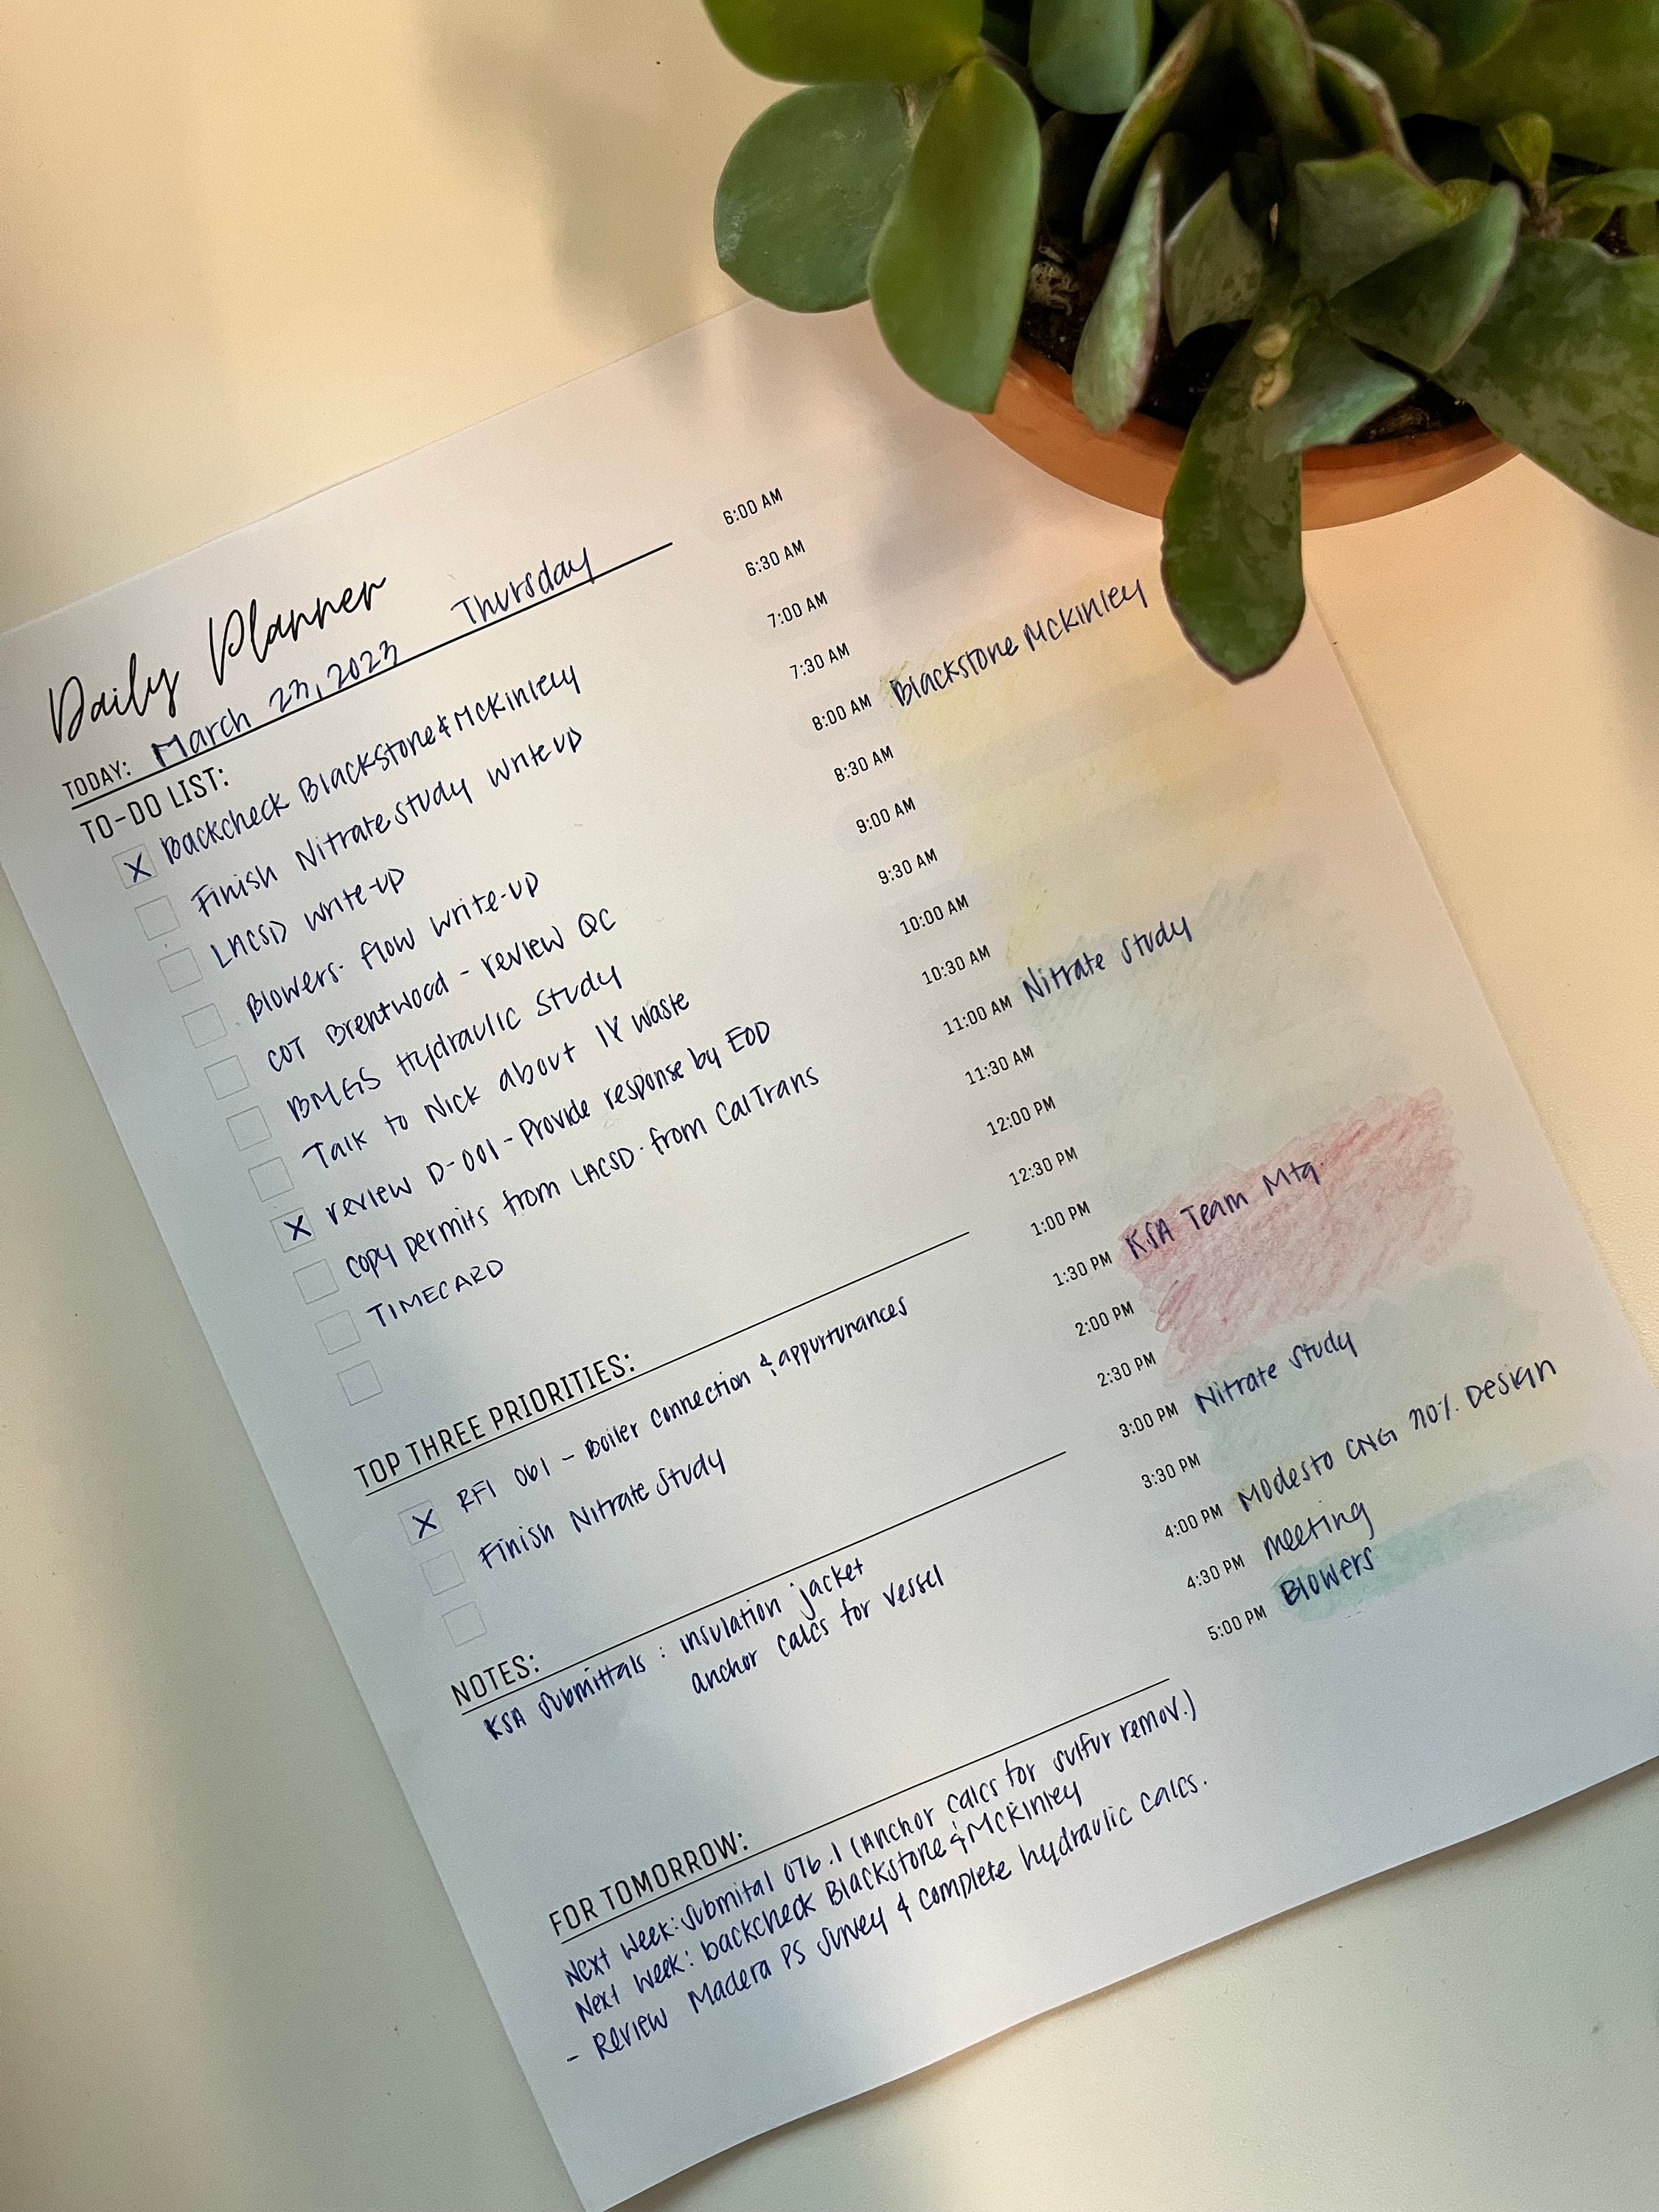 Daily Planner
TODAY: March 23, 2023 Thursday
TO-DO LIST:
X Backcheck Blackstone & McKinley
Finish Nitrate Study write up
LACSD write-up
Blowers. flow write-up
COT Brentwood - review QC
Hydraulic Study
Talk to Nick about IX waste
X review D-001 - Provide response by EOD
copy permits from LACSD. from CalTrans
TIMECARD
TOP THREE PRIORITIES:
X RFI 061 - Boiler connection & appurturances
Finish Nitrate Study
NOTES:
KSA submittals : insulation jacket
anchor calcs for vessel
FOR TOMORROW:
Next week: Submital 076.1 (Anchor calcs for sulfur remov.)
Next week: backcheck Blackstone & McKinley
- Review Madera PS survey & complete hydraulic calcs.
6:00 AM
6:30 AM
7:00 AM
7:30 AM
8:00 AM Blackstone McKinley
8:30 AM
9:00 AM
9:30 AM
10:00 AM
10:30 AM
11:00 AM Nitrate Study
11:30 AM
12:00 PM
12:30 PM
1:00 PM
1:30 PM KSA Team Mtg.
2:00 PM
2:30 PM
3:00 PM Nitrate Study
3:30 PM
4:00 PM Modesto CNG Design
4:30 PM meeting
5:00 PM Blowers